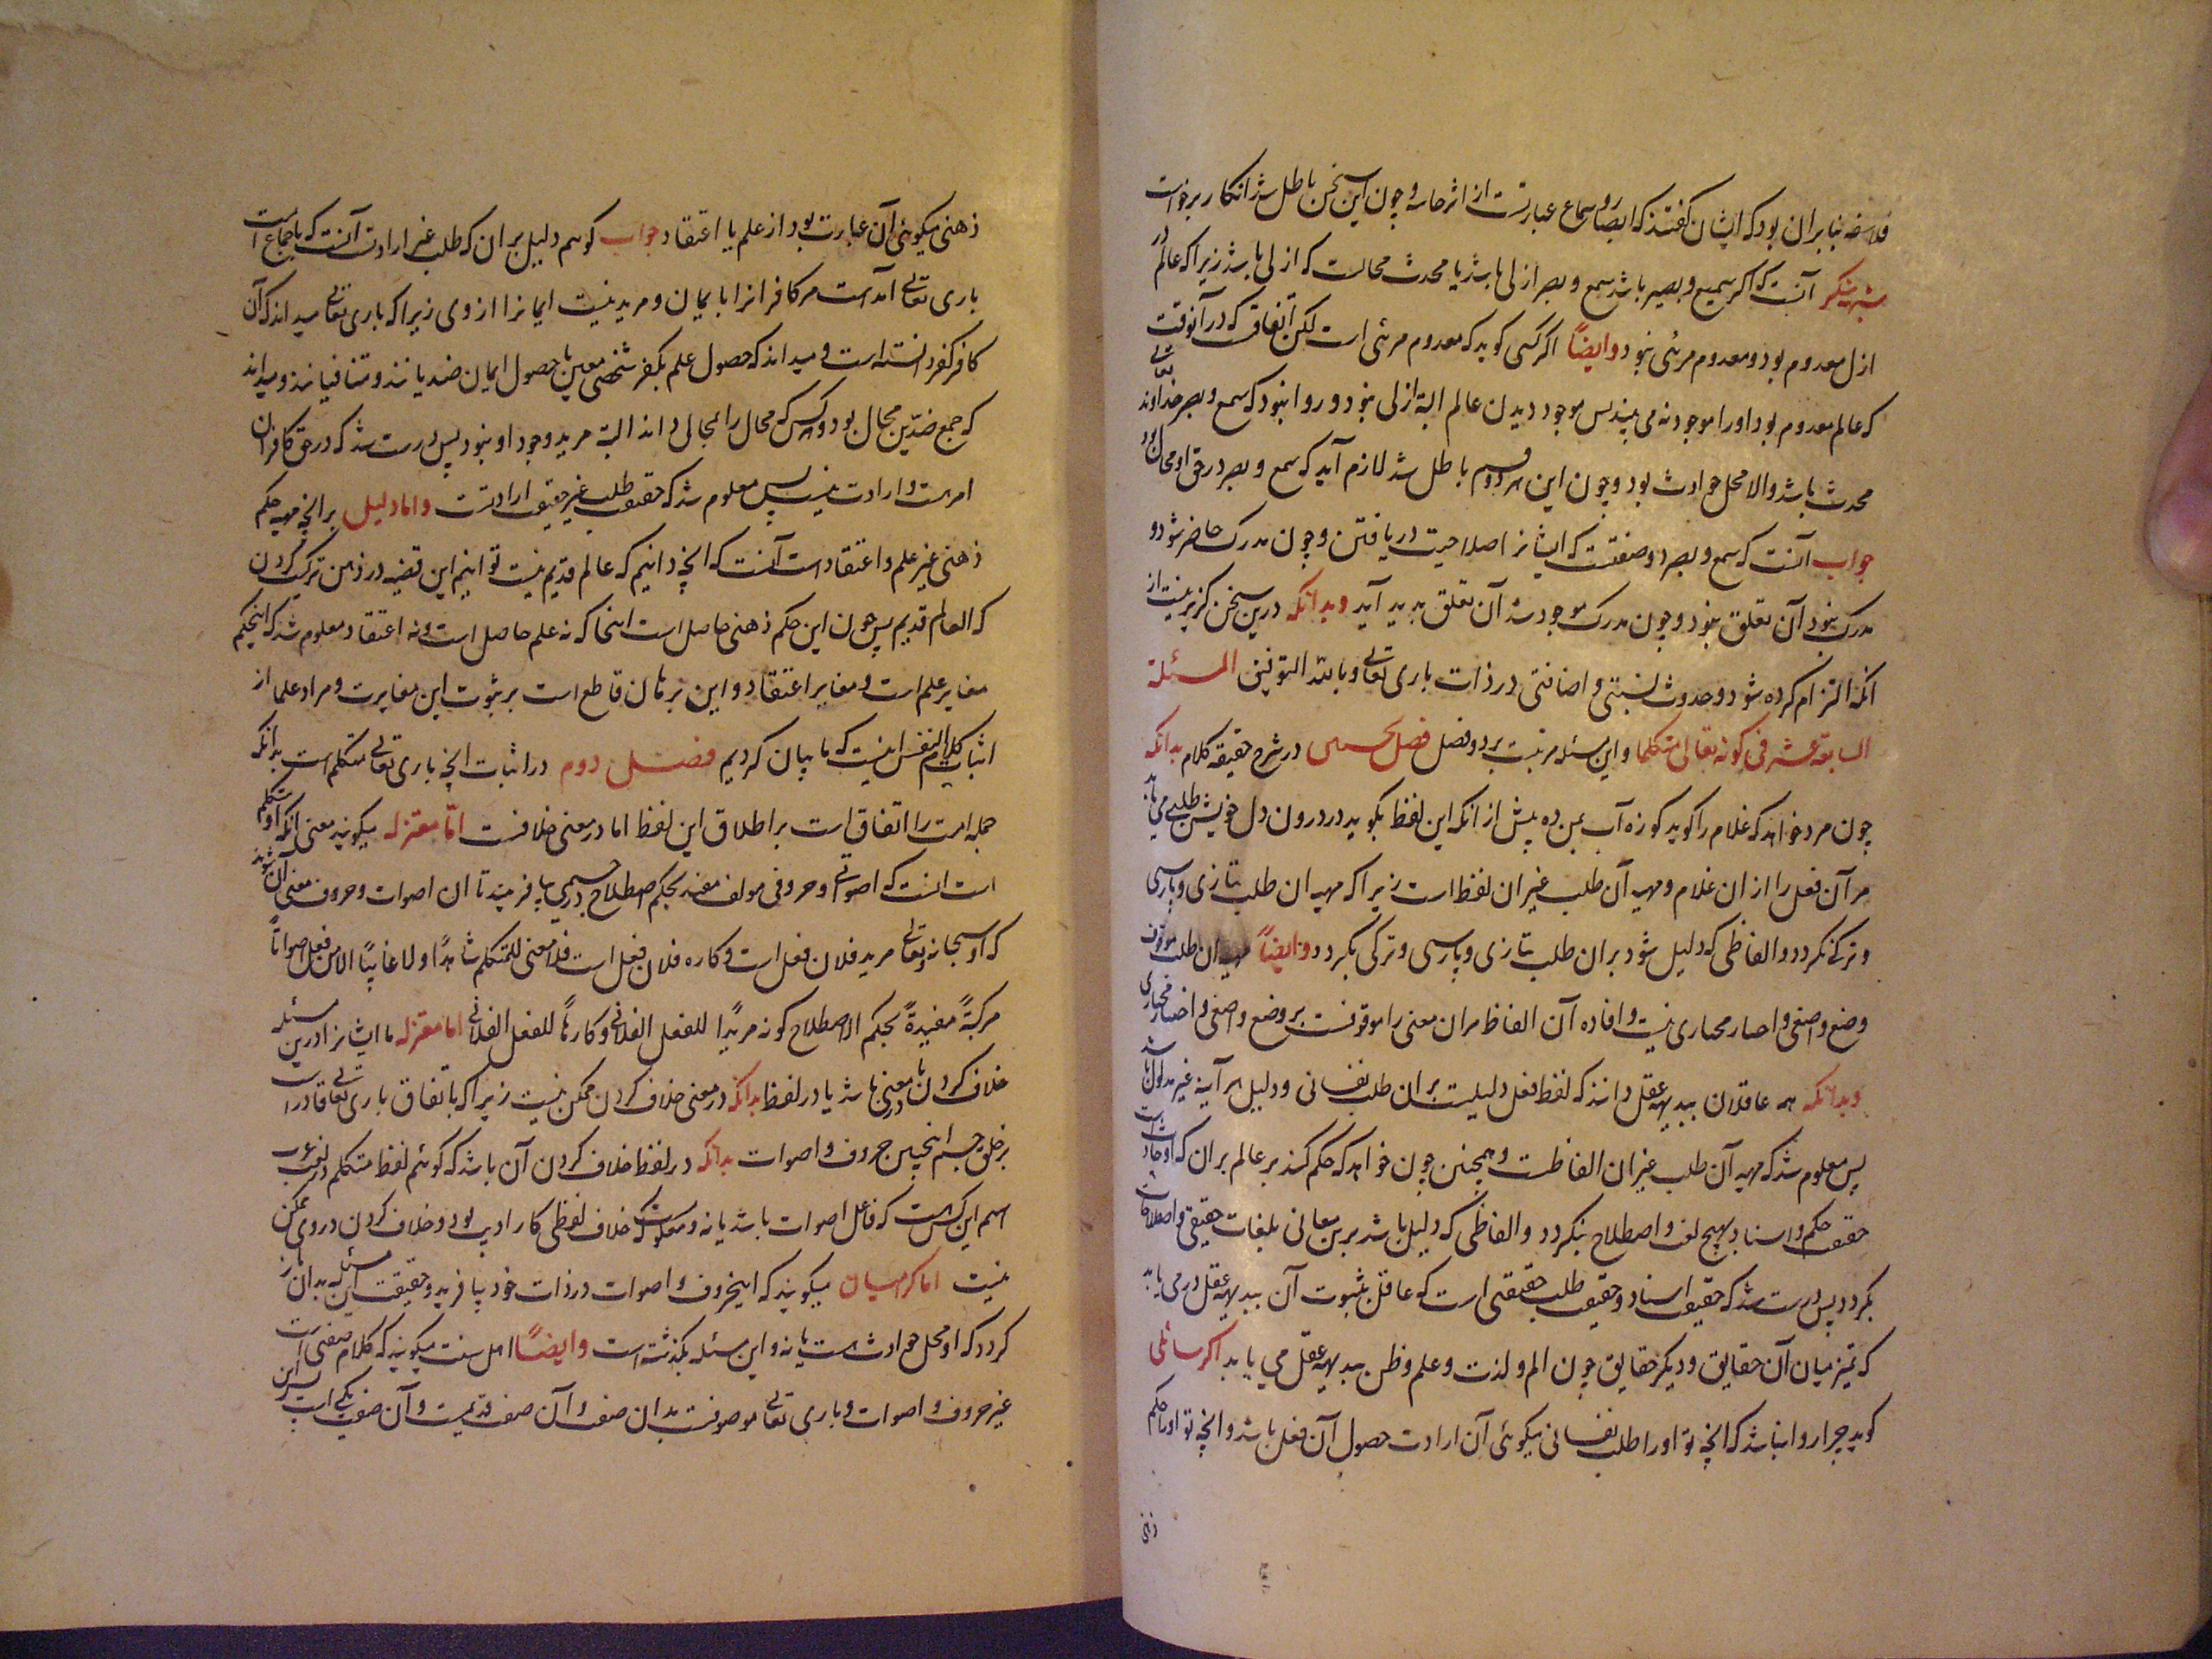 فلاسفه بنا بران بود که ایشان گفتند که ابصار و سماع عبارتست از اثر حاسه و چون این سخن باطل شد انکار برخواست
شبهه منکر آنست که اگر سمیع و بصیر باشد سمع و بصر ازلی باشد یا محدث محالست که ازلی باشد زیرا که عالم در
ازل معدوم بود و معدوم مرئی نبود وایضاً اگر کسی کوید که معدوم مرئی است لکن اتفاق که در آنوقت
که عالم معدوم بود او را موجود نه می بیند پس موجود دیدن عالم البته ازلی نبود و روا نبود که سمع و بصر خداوند تعالی
محدث باشد والا محل حوادث بود و چون این هر دو قسم باطل شد لازم آید که سمع و بصر در حق او محال بود
جواب آنست که سمع و بصر دو صفتست که ایشانرا صلاحیت دریافتن و چون مدرک حاضر شود و
مدرک نبود آن تعلق نبود و چون مدرک موجود شد آن تعلق بدید آید وبدانکه درین سخن گزیر نیست از
انکه التزام کرده شود و حدوث نسبتی و اضافتی در ذات باری تعالی و بالله التوفیق المسئلة
السابعة عشر فی کونه تعالی متکلما و این مسئله مرتبست بر دو فصل فصل نخستین در شرح حقیقة کلام بدانکه
چون مرد خواهد که غلام را کوید کوزه آب بمن ده پیش از انکه این لفظ بکوید در درون دل خویش طلبی می یابد
مر آن فعل را از ان غلام و مهیه آن طلب غیر ان لفظ است زیرا که مهیه ان طلب بتازی و پارسی
و ترکی نکردد و الفاظی که دلیل شود بران طلب بتازی و پارسی و ترکی بکردد وایضاً مهیه ان طلب موقوف
وضع واضعی و اختیار مختاری نیست و افاده آن الفاظ مران معنی را موقوفست بر وضع واضعی و اختیار مختاری
وبدانکه همه عاقلان ببدیهه عقل دانند که لفظ افعل دلیلیست بران طلب نفسانی و دلیل هر آینه غیر مدلول باشد
پس معلوم شد که مهیه آن طلب غیر ان الفاظست و همچنین چون خواهد که حکم کند بر عالم بران که او حادث است
حقیقت حکم و اسناد بهیچ لغت و اصطلاح بنکردد و الفاظی که دلیل باشد برین معانی بلغات حقیقی و اصطلاحات
بکردد پس درست شد که حقیقت اسناد و حقیقت طلب حقیقتی است که عاقل بثبوت آن ببدیهه عقل درمی یابد
که تمیز میان آن حقایق و دیکر حقایق چون الم و لذت و علم و ظن ببدیهه عقل می یابد اگر سائلی
کوید چرا روا نباشد که انچه تو او را طلب نفسانی میکوئی آن ارادت حصول آن فعل باشد و انچه تو او را حکم
ذهنی
ذهنی میکوئی آن عبارت بود از علم یا اعتقاد جواب کوئیم دلیل بران که طلب غیر ارادت آنست که باجماع امت
باری تعالی آمر است مر کافرانرا بایمان و مرید نیست ایمانرا از وی زیرا که باری تعالی میداند که آن
کافر کفر دانسته است و میداند که حصول علم بکفر شخصی معین با حصول ایمان ضدیانند و متنافیانند و میداند
که جمع ضدّین محال بود و هر کس که محال را محال داند البته مرید وجود او نبود پس درست شد که در حق کافران
امر هست و ارادت نیست پس معلوم شد که حقیقت طلب غیر حقیقت ارادتست واما دلیل بر انچه مهیه حکم
ذهنی غیر علم و اعتقاد است آنست که انچه دانیم که عالم قدیم نیست توانیم این قضیه در ذهن ترکیب کردن
که العالم قدیم پس چون این حکم ذهنی حاصل است انجا که نه علم حاصل است و نه اعتقاد معلوم شد که اینحکم
مغایر علم است و مغایر اعتقاد و این برهان قاطع است بر ثبوت این مغایرت و مراد علما از
اثبات کلام النفس اینست که ما بیان کردیم فصل دوم در اثبات انچه باری تعالی متکلم است بدانکه
جمله امت را اتفاق است بر اطلاق این لفظ اما در معنی خلافست امّا معتزله میکویند معنی انکه او متکلم
است انست که اصواتی و حروفی مولف مفید بحکم اصطلاح در جسمی بیافریند تا ان اصوات و حروف معنی آن شوند
که او سبحانه و تعالی مرید فلان فعل است و کاره فلان فعل است فلا معنی للمتکلم شاهدًا و لا غائبًا الا من فعل اصواتًا
مرکبةً مفیدةً بحکم الاصطلاح کونه مریدًا للفعل الفلانی و کارهًا للفعل الفلانی اما معتزله ما ایشانرا درین مسئله
خلاف کردن یا در معنی باشد یا در لفظ بدانکه در معنی خلاف کردن ممکن نیست زیرا که باتفاق باری تعالی قادر است
بر خلق جسم انچنین حروف و اصوات بدانکه در لفظ خلاف کردن آن باشد که کوئیم لفظ متکلم در لغت عرب
اسم این کس هست که فاعل اصوات باشد یا نه و معلومست که خلاف لفظی کار ادیب بود و خلاف کردن در وی ممکن
نیست اما کرامیان میکویند که اینحروف و اصوات در ذات خود بیافرید و حقیقت این مسئله بدان باز
کردد که او محل حوادث هست یا نه و این مسئله بکذشته است وایضًا اهل سنت میکویند که کلام صفتی است
غیر حروف و اصوات و باری تعالی موصوفست بدان صفت و آن صفت قدیمست و آن صفت یکی است